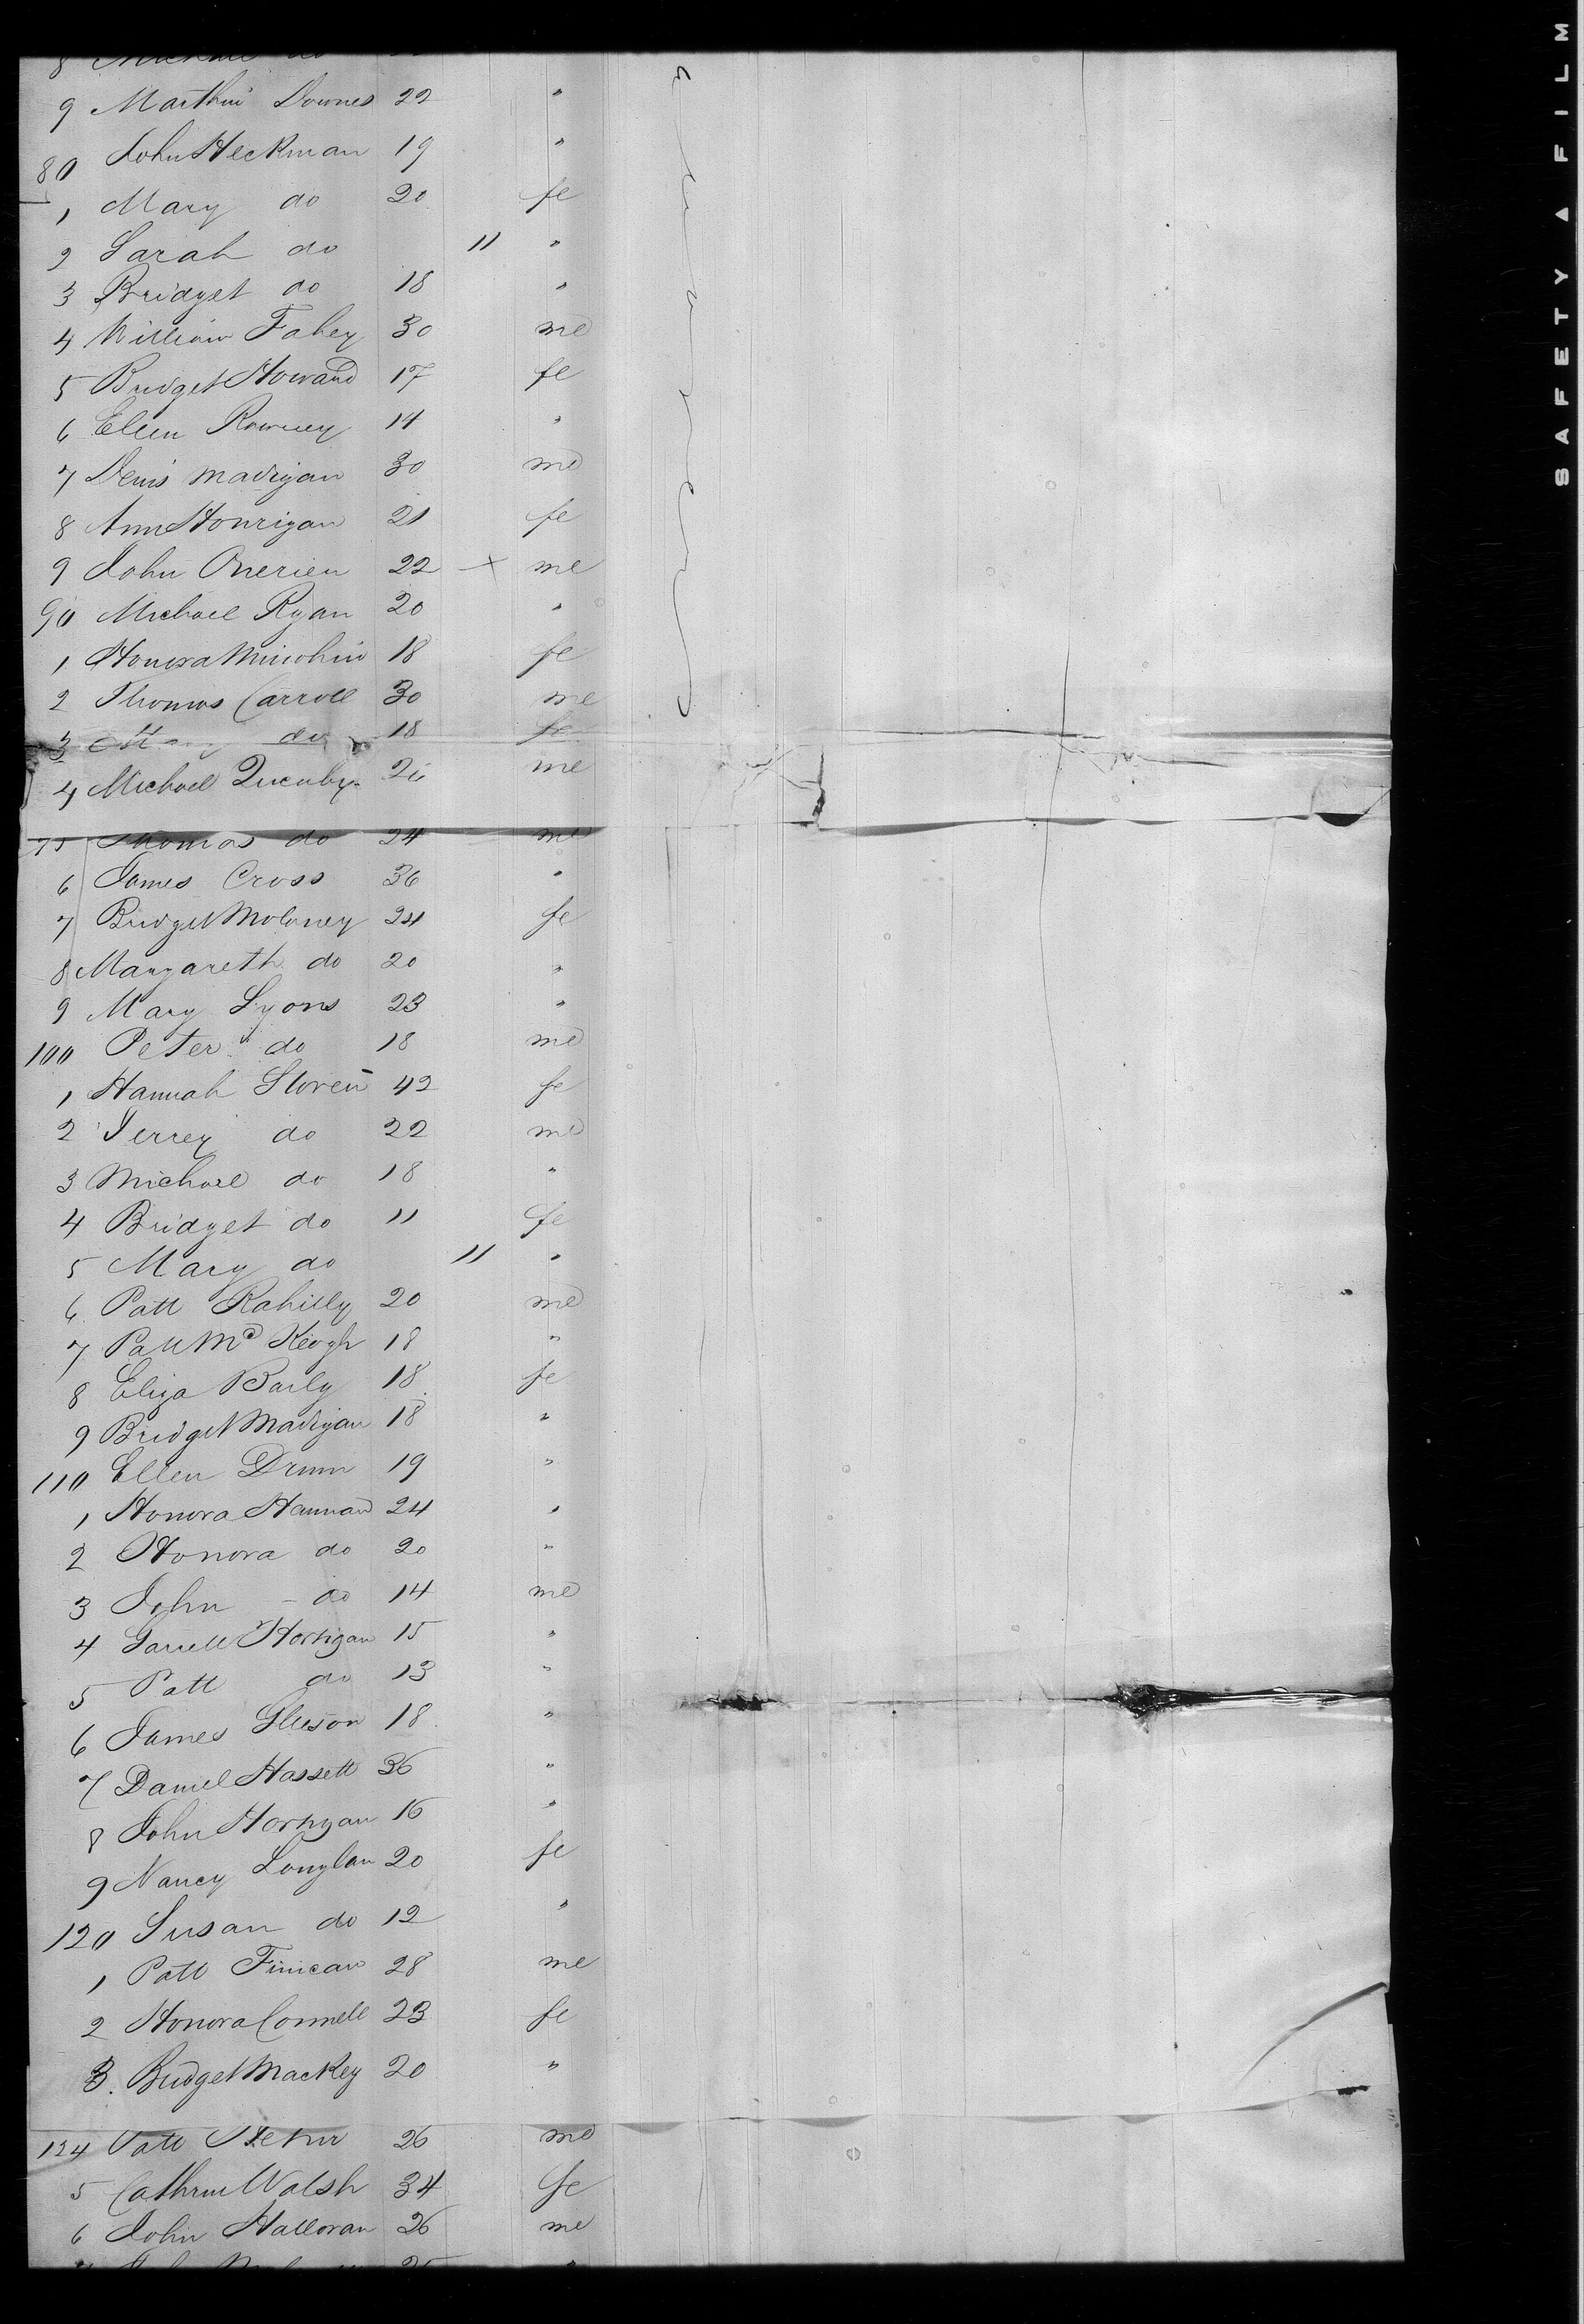 8 Michael do
9 Matthew Downes 22 "
80 John Heckman 19 "
1 Mary do 20 fe
2 Sarah do 11 "
3 Bridget do 18 "
4 William Fahey 30 me
5 Bridget Howard 17 fe
6 Ellen 14 "
7 Denis Madigan 30 me
8 Ann Hourigan 21 fe
9 John 22 + me
90 Michael Ryan 20 "
1 Honora 18 fe
2 Thomas Carroll 30 me
3 do 18 fe
4 Michael me
95 Thomas do 24 me
6 James Cross 36 "
7 Bridget Moloney 24 fe
8 Margareth do 20 "
9 Mary Lyons 23 "
100 Peter do 18 me
1 Hannah 42 fe
2 Jerrey do 22 me
3 Michael do 18 "
4 Bridget do 11 fe
5 Mary do 11 "
6 Patt Rahilly 20 me
7 Patt Mc Keogh 18 "
8 Eliza Barly 18 fe
9 Bridget Madigan 18 "
110 Ellen 19 "
1 Honora Hannan 24 "
2 Honora do 20 "
3 John - do 14 me
4 Horrigan 15 "
5 Patt do 13 "
6 James Gleeson 18 "
7 Daniel Hassett 36 "
8 John Horrigan 16 "
9 Nancy 20 fe
120 Susan do 12 "
1 Patt Finican 28 me
2 Honora Connell 23 fe
3. Bridget Mackey 20 "
124 Patt 26 me
5 Walsh 34 fe
6 John Halloran 26 me
SAFETY ▲ FILM